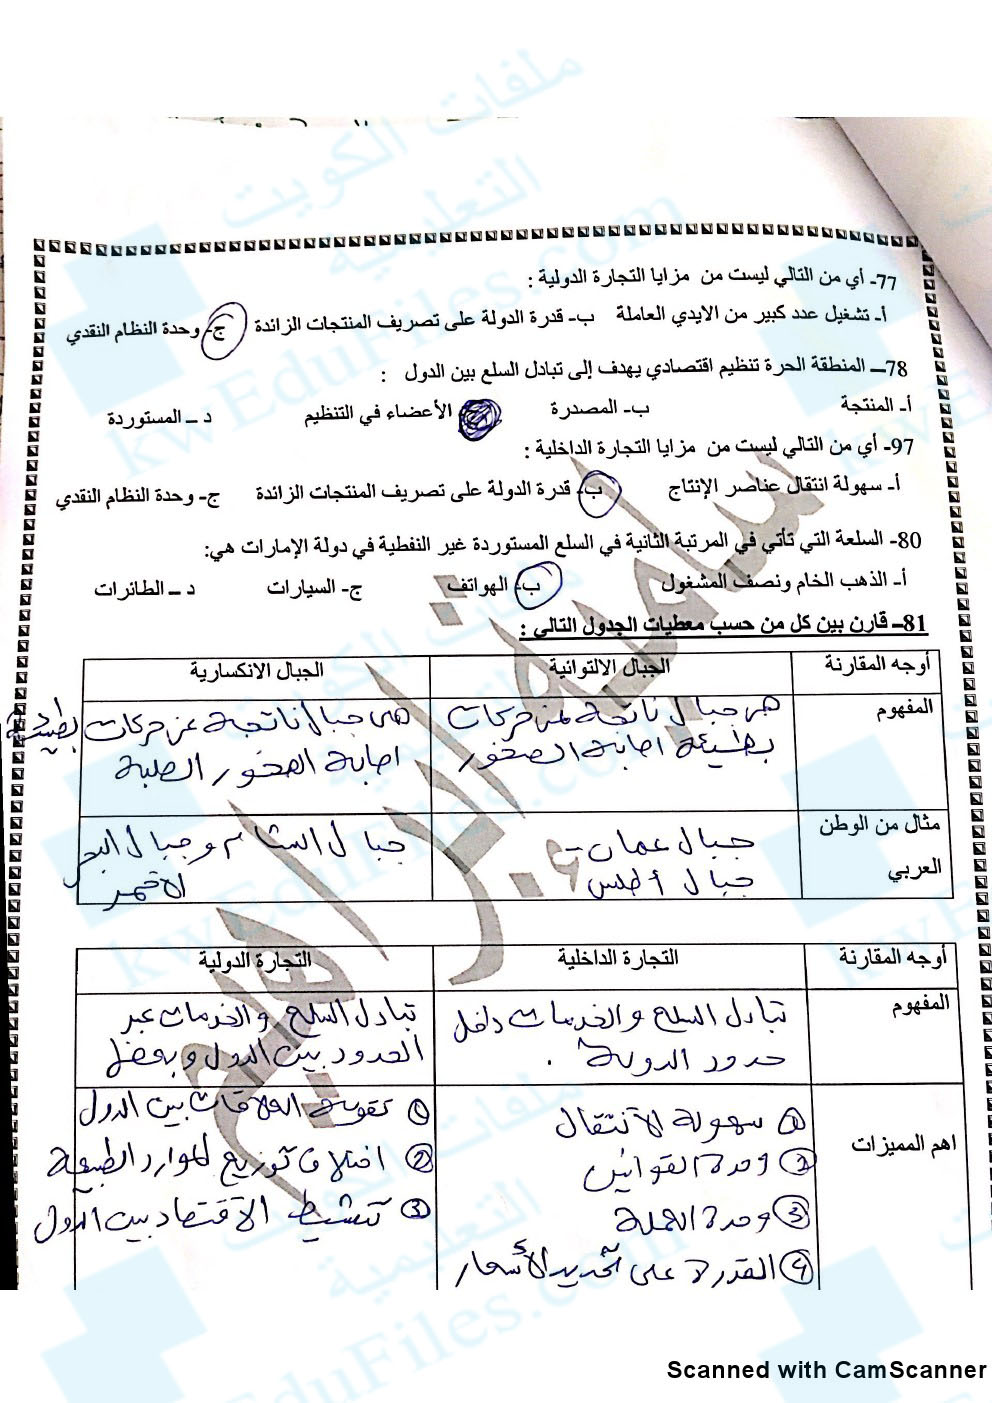 77- أي من التالي ليست من مزايا التجارة الدولية :
أ- تشغيل عدد كبير من الايدي العاملة ب- قدرة الدولة على تصريف المنتجات الزائدة ج- وحدة النظام النقدي
78ـ المنطقة الحرة تنظيم اقتصادي يهدف إلى تبادل السلع بين الدول :
أ- المنتجة ب- المصدرة الأعضاء في التنظيم د ــ المستوردة
97- أي من التالي ليست من مزايا التجارة الداخلية :
أ- سهولة انتقال عناصر الإنتاج ب- قدرة الدولة على تصريف المنتجات الزائدة ج- وحدة النظام النقدي
80- السلعة التي تأتي في المرتبة الثانية في السلع المستوردة غير النفطية في دولة الإمارات هي:
أ- الذهب الخام ونصف المشغول ب- الهواتف ج- السيارات د ــ الطائرات
81ـ قارن بين كل من حسب معطيات الجدول التالي :
أوجه المقارنة الجبال الالتوائية الجبال الانكسارية
المفهوم هي جبال ناتجة من حركات هي جبال ناتجة عن حركات بطيئة
بطيئة اصابة الصخور اصابة الصخور الصلبة
مثال من الوطن جبال عمان - جبال الشام وجبال البحر
العربي جبال أطلس الاحمر
أوجه المقارنة التجارة الداخلية التجارة الدولية
المفهوم تبادل السلع والخدمات داخل تبادل السلع والخدمات عبر
حدود الدولة . الحدود بين الدول وبعضها
اهم المميزات
① سهولة الانتقال ① تقوية العلاقات بين الدول
② وحدة القوانين ② اختلاف توزيع الموارد الطبيعية
③ وحدة العملة ③ تنشيط الاقتصاد بين الدول
④ القدرة على تحديد الأسعار
سلمة ابراهيم
ملفات الكويت
التعليمية
kwEduFiles.com
Scanned with CamScanner